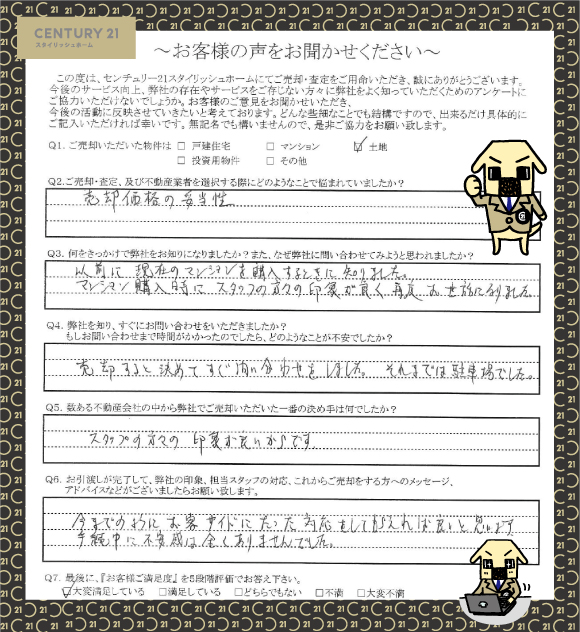 CENTURY 21
スタイリッシュホーム
～お客様の声をお聞かせください～
この度は、センチュリー21スタイリッシュホームにてご売却・査定をご用命いただき、誠にありがとうございます。
今後のサービス向上、弊社の存在やサービスをご存じない方々に弊社をよく知っていただくためのアンケートに
ご協力いただけないでしょうか。お客様のご意見をお聞かせいただき、
今後の活動に反映させていきたいと考えております。どんな些細なことでも結構ですので、出来るだけ具体的に
ご記入いただければ幸いです。無記名でも構いませんので、是非ご協力をお願い致します。
Q1. ご売却いただいた物件は □ 戸建住宅 □ マンション ☑ 土地
□ 投資用物件 □ その他
Q2.ご売却・査定、及び不動産業者を選択する際にどのようなことで悩まれていましたか？
売却価格の妥当性。
Q3. 何をきっかけで弊社をお知りになりましたか？また、なぜ弊社に問い合わせてみようと思われましたか？
以前に現在のマンションを購入するときに知りました。
マンション購入時にスタッフの方々の印象が良く再度お世話に成りました
Q4. 弊社を知り、すぐにお問い合わせをいただきましたか？
もしお問い合わせまで時間がかかったのでしたら、どのようなことが不安でしたか？
売却すると決めてすぐ問い合わせをしました。それまでは駐車場でした。
Q5. 数ある不動産会社の中から弊社でご売却いただいた一番の決め手は何でしたか？
スタッフの方々の印象が良いからです
Q6. お引渡しが完了して、弊社の印象、担当スタッフの対応、これからご売却をする方へのメッセージ、
アドバイスなどがございましたらお願い致します。
今までの様にお客サイドにたった対応をしてもらえれば良いと思います
手続中に不安感は全くありませんでした。
Q7. 最後に、『お客様ご満足度』を5段階評価でお答え下さい。
☑大変満足している □満足している □どちらでもない □不満 □大変不満